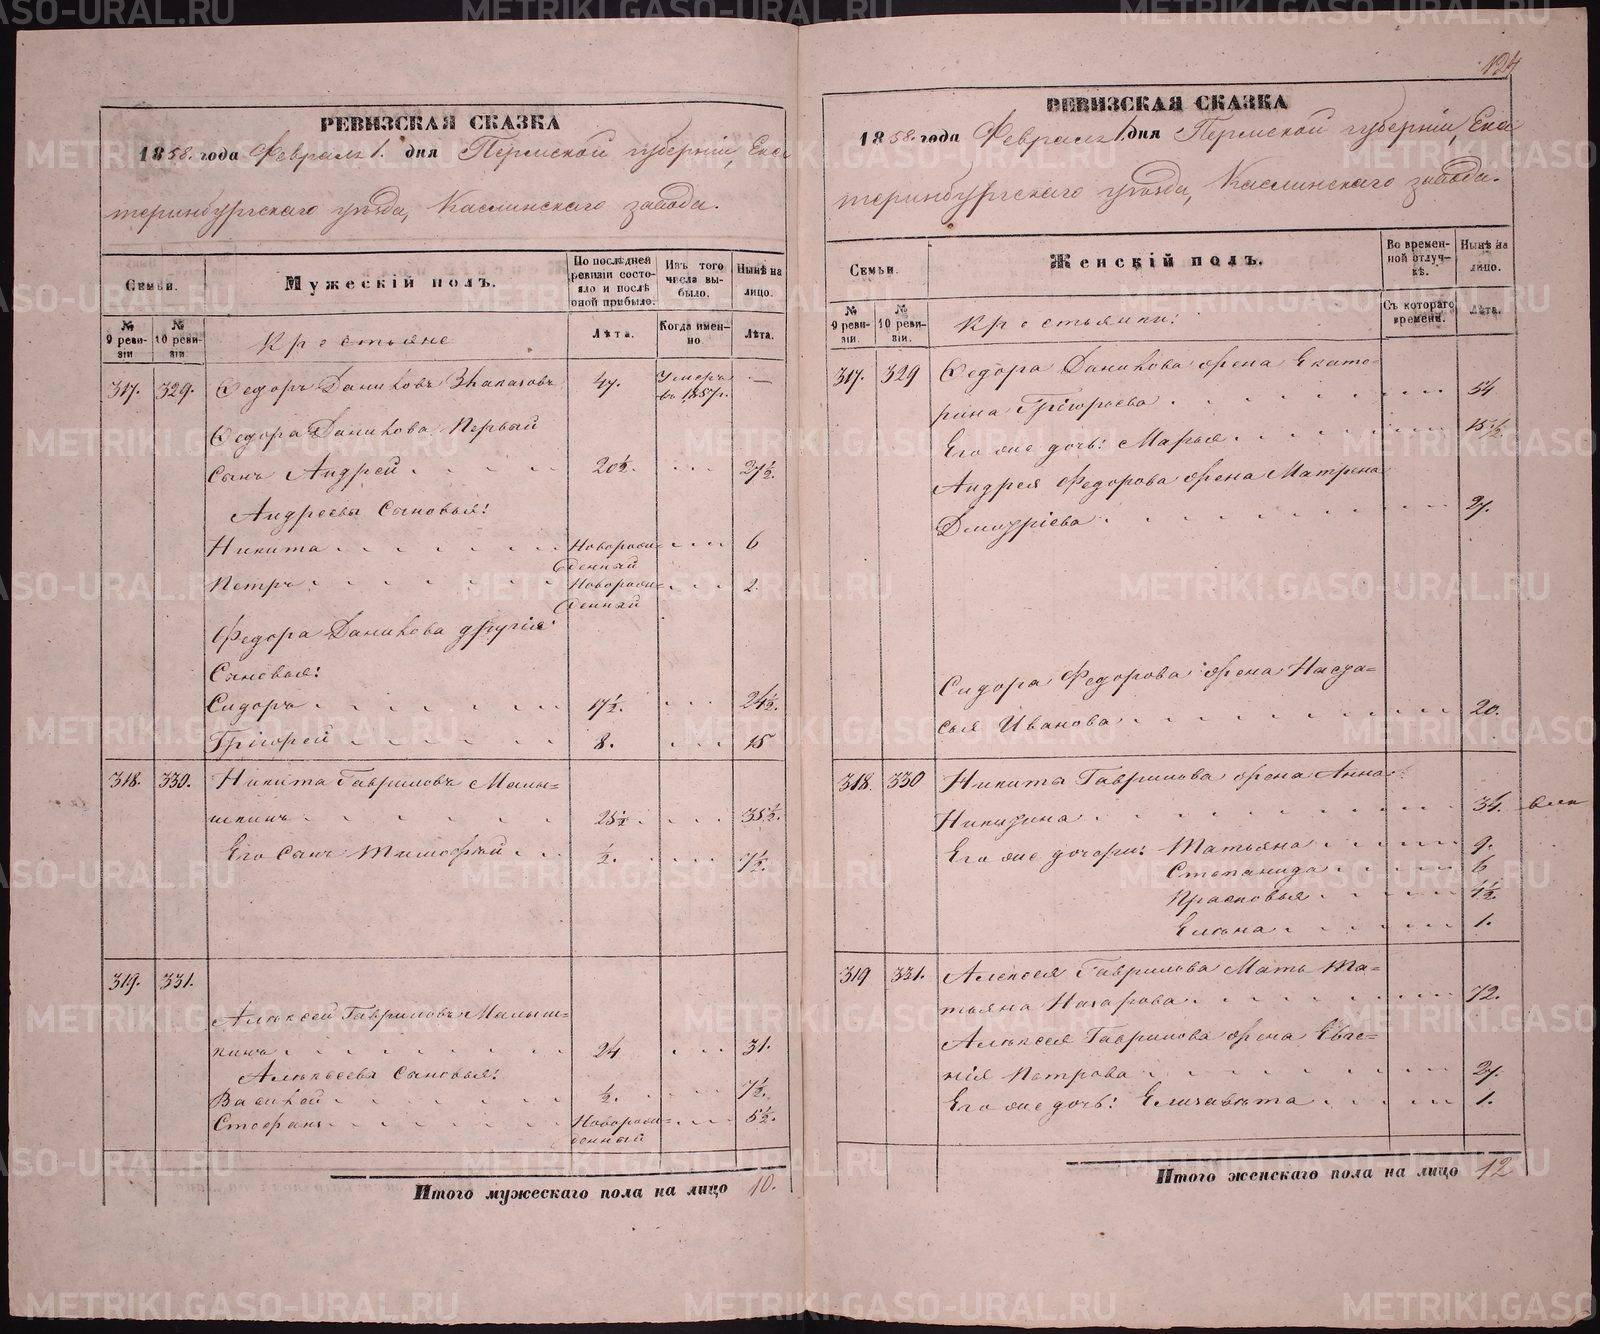 РЕВИЗСКАЯ СКАЗКА
1858. года Февраля 1. дня Пермской губерніи, Ека
теринбургскаго уѣзда, Каслинскаго завода.
Семьи.
Мужескій полъ.
По последней ревизіи состояло и послѣ оной прибыло.
Изъ того числа выбыло.
Нынѣ на лицо.
№ 9 ревизіи
№ 10 ревизіи
Крестьяне
Лѣта.
Когда именно
Лѣта.
317. 329. Ѳедоръ Даниловъ 47. Умеръ въ 1857г. —
Ѳедора Данилова Первый
Сынъ Андрей 20½. 27½.
Андреевы Сыновья:
Никита Новорожденный 6
Петръ Новорожденный 2.
Федора Данилова другія
Сыновья:
Сидоръ 17½. 24½.
Григорей 8. 15
318. 330. Никита Гавриловъ Малы=
шкинъ 28½. 35½.
Его Сынъ Тимофѣй ½. 7½.
319. 331.
Алѣксей Гавриловъ Малыш=
кинъ 24 31.
Алѣксѣевы Сыновья:
Василей ½. 7½.
Стефанъ Новорожденный 5½.
Итого мужескаго пола на лицо 10.
124
РЕВИЗСКАЯ СКАЗКА
1858. года Февраля 1. дня Пермской губерніи, Ека
теринбургскаго уѣзда, Каслинскаго завода.
Семьи.
Женскій полъ.
Во временной отлучкѣ.
Нынѣ на лицо.
№ 9 ревизіи.
№ 10 ревизіи.
Крестьянки:
Съ котораго времени.
Лѣта.
317. 329 Ѳедора Данилова жена Екате=
рина Григорьева 54
Его же дочь: Марья 15½.
Андрея Федорова жена Матрена
Дмитріева 27.
Сидора Федорова жена Наста=
сья Иванова 20.
318. 330 Никиты Гаврилова жена Анна
Никитина 34.
Его же дочери: Татьяна 9.
Степанида 6
Прасковья 4½.
Елѣна 1.
319 331. Алѣксея Гаврилова Мать Та=
тьяна Назарова 72.
Алѣксея Гаврилова жена Евге=
нія Петрова 27.
Его же дочь: Елизавѣта 1.
Итого женскаго пола на лицо 12
METRIKI.GASO-URAL.RU